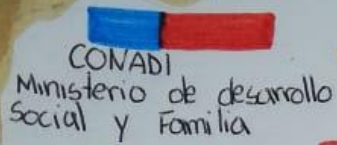 CONADI
Ministerio de desarrollo
Social y Familia